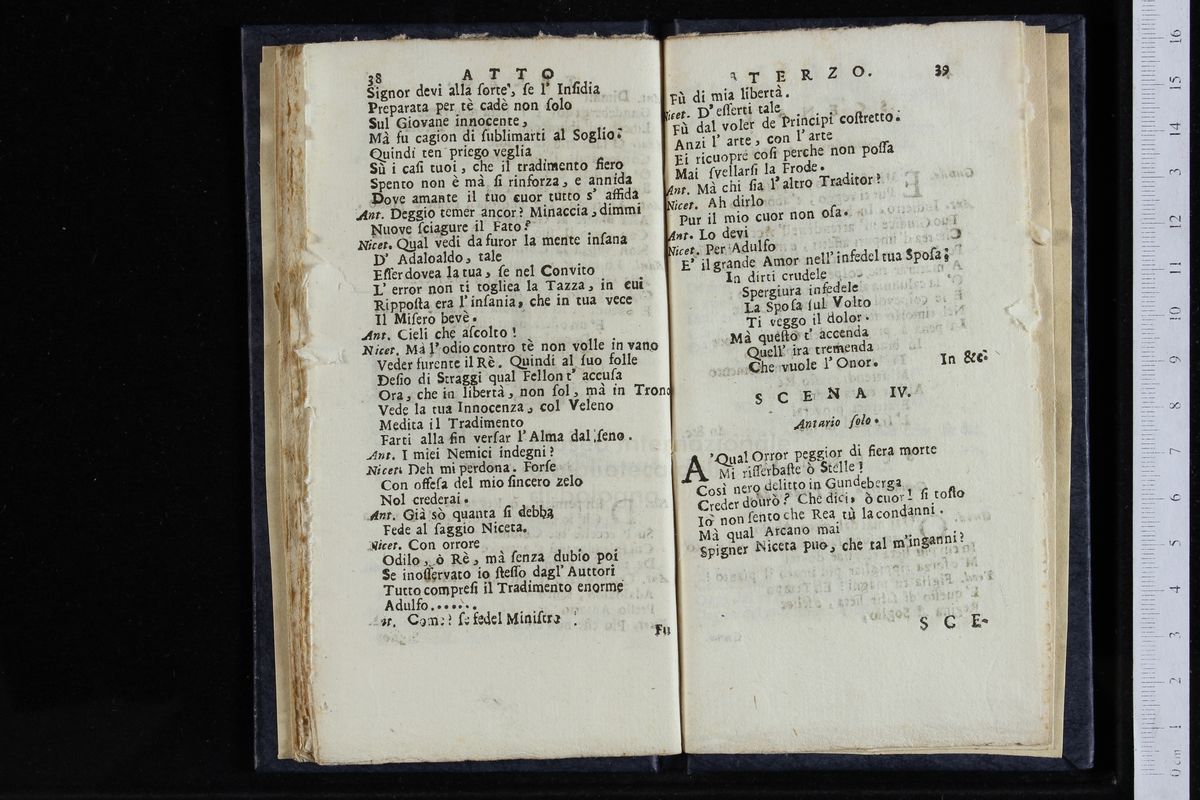 38 ATTO
Signor devi alla sorte, se l' Insidia
Preparata per tè cadè non solo
Sul Giovane innocente,
Mà fu cagion di sublimarti al Soglio:
Quindi ten priego veglia
Sù i casi tuoi, che il tradimento fiero
Spento non è mà si rinforza, e annida
Dove amante il tuo cuor tutto s' affida
Ant. Deggio temer ancor? Minaccia, dimmi
Nuove sciagure il Fato?
Nicet. Qual vedi da furor la mente insana
D' Adaloaldo, tale
Esser dovea la tua, se nel Convito
L' error non ti togliea la Tazza, in cui
Ripposta era l' insania, che in tua vece
Il Misero bevè.
Ant. Cieli che ascolto!
Nicet. Mà l' odio contro tè non volle in vano
Veder furente il Rè. Quindi al suo folle
Desio di Straggi qual Fellon t' accusa
Ora, che in libertà, non sol, mà in Trono
Vede la tua Innocenza, col Veleno
Medita il Tradimento
Farti alla fin versar l' Alma dal seno.
Ant. I miei Nemici indegni?
Nicet. Deh mi perdona. Forse
Con offesa del mio sincero zelo
Nol crederai.
Ant. Già sò quanta si debba
Fede al saggio Niceta.
Nicet. Con orrore
Odilo, ò Rè, mà senza dubio poi
Se inosservato io stesso dagl' Auttori
Tutto compresi il Tradimento enorme
Adulfo.......
Ant. Come? se fedel Ministro
Fù
TERZO. 39
Fù di mia libertà.
Nicet. D' esserti tale
Fù dal voler de Principi costretto:
Anzi l' arte, con l' arte
Ei ricuopre così perche non possa
Mai svellarsi la Frode.
Ant. Mà chi sia l' altro Traditor?
Nicet. Ah dirlo
Pur il mio cuor non osa.
Ant. Lo devi
Nicet. Per Adulfo
E' il grande Amor nell' infedel tua Sposa;
In dirti crudele
Spergiura infedele
La Sposa sul Volto
Ti veggo il dolor.
Mà questo t' accenda
Quell' ira tremenda
Che vuole l' Onor. In &c.
SCENA IV.
Antario solo.
A' Qual Orror peggior di fiera morte
Mi risserbaste ò Stelle!
Così nero delitto in Gundeberga
Creder dourò? Che dici, ò cuor! si tosto
Iò non sento che Rea tù la condanni.
Mà qual Arcano mai
Spigner Niceta puo, che tal m'inganni?
SCE-
0 cm 1 2 3 4 5 6 7 8 9 10 11 12 13 14 15 16